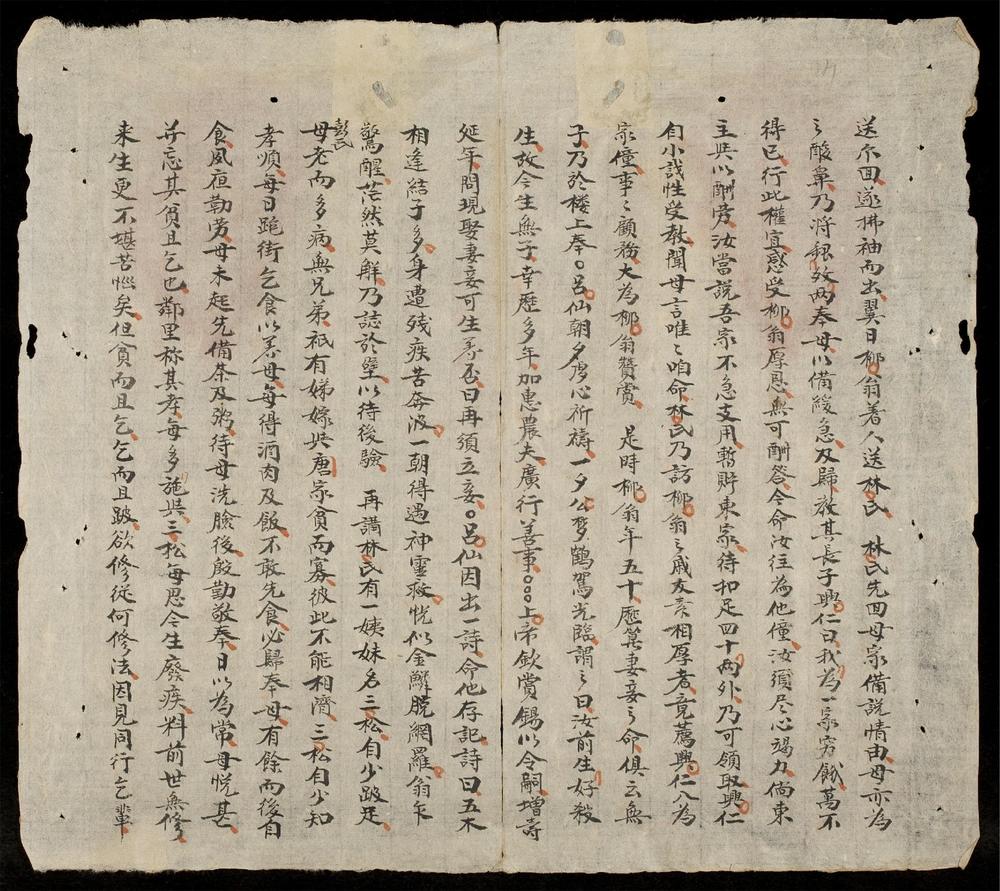 送尔回遂拂袖而出翼日柳翁着人送林氏 林氏先回母家備說情由母亦為
之酸鼻乃將銀效两奉母以備緩急及歸教其長子興仁曰我為一家穷餓萬不
得已行此權宜感受柳翁厚恩無可酬答今命汝往為他僮汝須尽心竭力倘東
主與以酬労汝當説吾家不急支用暫貯東家待扣足四十两外乃可領取興仁
自小誠性受教聞母言唯〻咱命林氏乃訪柳翁之戚友素相厚者竟薦興仁入為
家僮事〻顧務大為柳翁贊賞 是時柳翁年五十歷筭妻妾之命俱云無
子乃於楼上奉○呂仙朝夕虔心祈禱一夕公梦鶴駕光臨謂之曰汝前生好殺
生故今生無子幸歷多年加惠農夫廣行善事○○○上帝欽賞錫以令嗣增壽
延年問現娶妻妾可生養否曰再須立妾○呂仙因出一詩命他存記詩曰五木
相逢結子多身遭殘疾苦奔波一朝得遇神靈救恍似金鱗脱網羅翁乍
驚醒茫然莫解乃誌於壁以待後驗 再講林氏有一姨妹名三松自少跛足
彭氏
母老而多病無兄弟祇有娣嫁與唐家貧而寡彼此不能相濟三松自少知
孝順每日跪街乞食以养母每得酒肉及飯不敢先食必歸奉母有餘而後自
食夙夜勤劳母未起先備茶及粥待母洗臉後殷勤敬奉日以為常母悦甚
并忘其貧且乞也鄰里称其孝每多施與三松每思今生廢疾料前世無修
来生更不堪苦惱矣但貧而且乞乞而且跛欲修從何修法因見同行乞輩